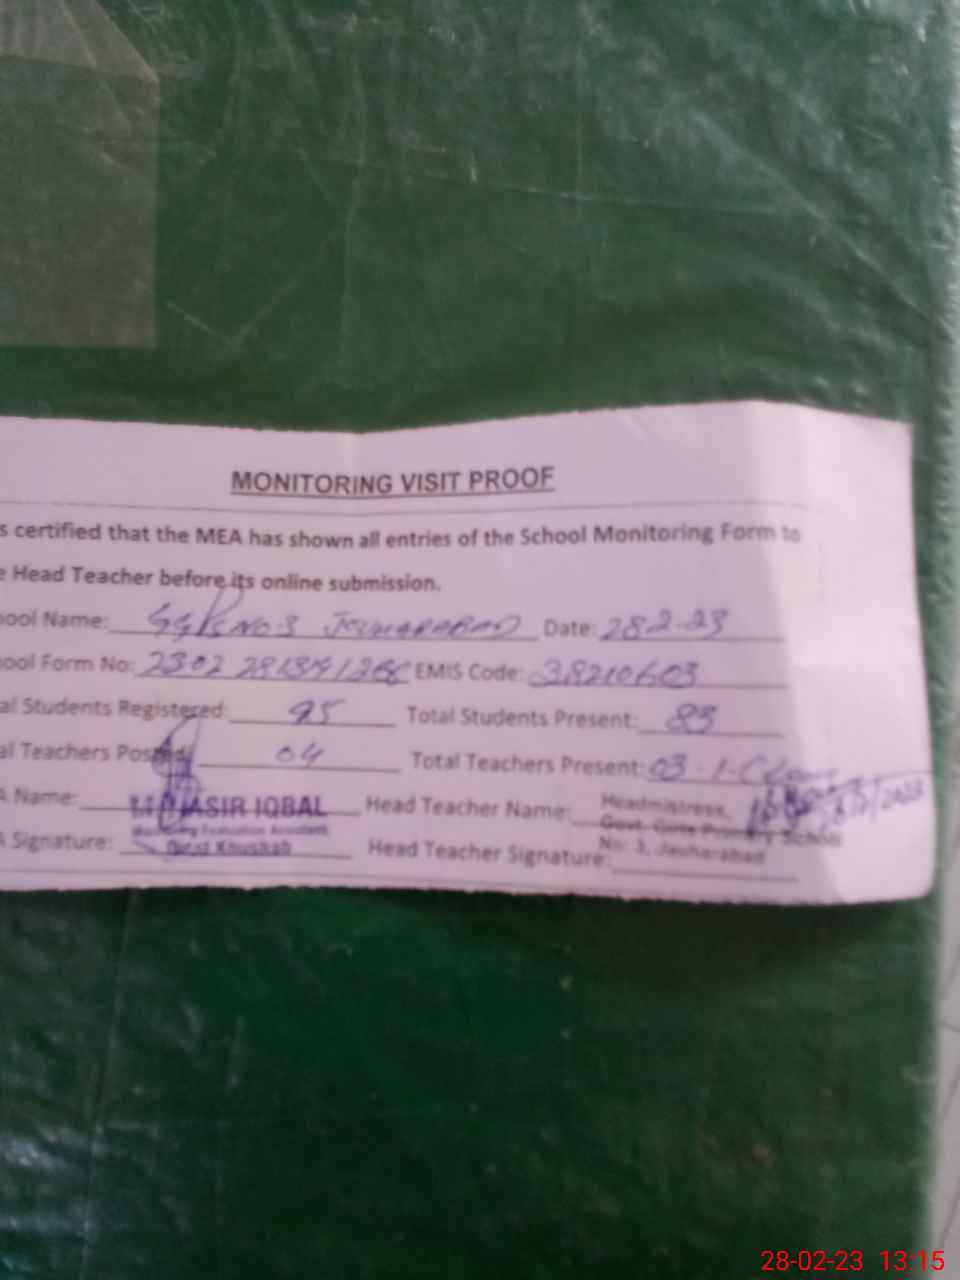 MONITORING VISIT PROOF
s certified that the MEA has shown all entries of the School Monitoring Form to
e Head Teacher before its online submission.
ool Name: GGPS NO.3 JOUHARABAD Date: 28-2-23
ool Form No: EMIS Code: 38210603
al Students Registered: 95 Total Students Present: 83
al Teachers Posted 04 Total Teachers Present: 03
A Name: ASIR IQBAL Head Teacher Name: Headmistress,
Monitoring Evaluation Assistant Govt. Girls Primary School
A Signature: Distt Khushab Head Teacher Signature: No: 3, Jauharabad
28-02-23 13:15